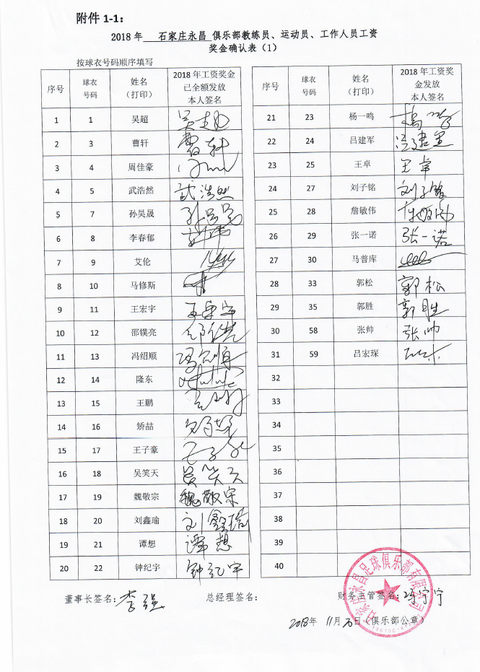 附件 1-1：
2018 年 石家庄永昌 俱乐部教练员、运动员、工作人员工资
奖金确认表（1）
按球衣号码顺序填写
序号 球衣号码 姓名（打印） 2018 年工资奖金已全额发放本人签名
1 1 吴超 吴超
2 3 曹轩 曹轩
3 4 周佳豪
4 5 武浩然 武浩然
5 7 孙昊晟
6 8 李春郁
7 9 艾伦
8 10 马修斯
9 11 王宏宇
10 12 邵镤亮
11 13 冯绍顺
12 14 隆东
13 15 王鹏
14 16 矫喆
15 17 王子豪
16 18 吴笑天 吴笑天
17 19 魏敬宗 魏敬宗
18 20 刘鑫瑜
19 21 谭想 谭想
20 22 钟纪宇 钟纪宇
序号 球衣号码 姓名（打印） 2018 年工资奖金发放本人签名
21 23 杨一鸣
22 24 吕建军 吕建军
23 25 王卓 王卓
24 27 刘子铭 刘子铭
25 28 詹敏伟
26 29 张一诺 张一诺
27 30 马普库
28 33 郭松 郭松
29 35 郭胜 郭胜
30 58 张帅 张帅
31 59 吕宏琛
32
33
34
35
36
37
38
39
40
董事长签名： 李强 总经理签名： 财务主管签名：
2018 年 11 月 日（俱乐部公章）